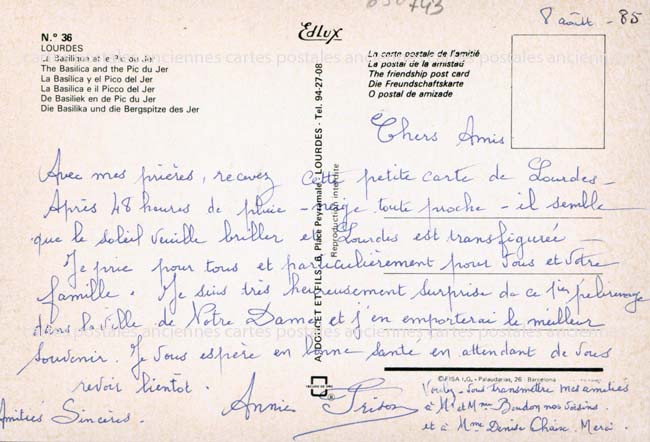 650743
8 août - 85
N.º 36
LOURDES
La Basilique et le Pic du Jer
The Basilica and the Pic du Jer
La Basilica y el Pico del Jer
La Basilica e il Picco del Jer
De Basiliek en de Pic du Jer
Die Basilika und die Bergspitze des Jer
Edlux
La carte postale de l'amitié
La postal de la amistad
The friendship post card
Die Freundschaftskarte
O postal de amizade
cartes postales anciennes cartes postales anciennes cartes postales
ET FILS, 6, Place Peyramale, LOURDES - Tel. 94-27-08
Reproduction interdite
Chers Amis
Avec mes prières, recevez cette petite carte de Lourdes -
Après 48 heures de pluie - neige toute proche - il semble
que le soleil veuille briller et Lourdes est transfigurée -
Je prie pour tous et particulièrement pour vous et votre
famille. Je suis très heureusement surprise de ce 1er pélerinage
dans la ville de Notre Dame et j'en emporterai le meilleur
souvenir. Je vous espère en bonne santé en attendant de vous
revoir bientôt.
Amitiés Sincères.
Annie
© FISA I.G. - Palaudarias, 26 - Barcelona
Voulez-vous transmettre mes amitiés
à Mr et Mme Boudon nos voisins
et à Mme Denise Chaix. Merci.